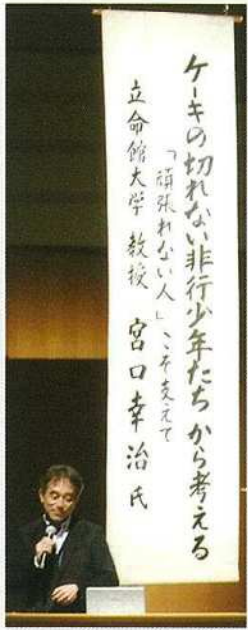 ケーキの切れない非行少年たちから考える
「頑張れない人」こそ支えて
立命館大学 教授 宮口幸治 氏